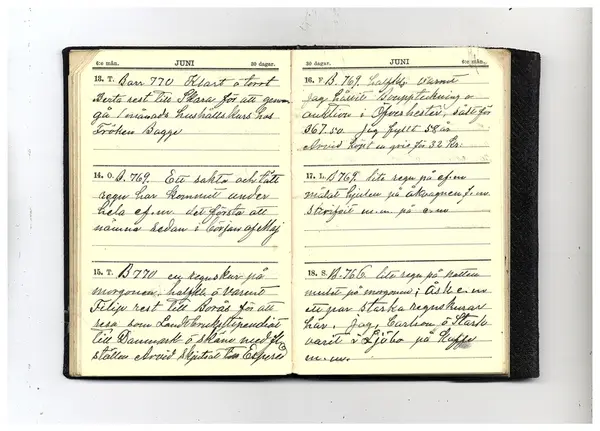 6:e mån. JUNI 30 dagar.
13. T. Barr 770 Klart o torrt
Berta rest till Skara för att genom
gå 1 månads hushållskurs hos
Fröken Bagge
14. O. B. 769. Ett sakta och tätt
regn har kommit under
hela ef.m. det första att
nämna sedan i början af Maj
15. T. B 770 en regnskur på
morgonen. halfkl. o varmt
Filip rest till Borås för att
resa som Landt
till Danmark o Skåne med fl.
ställen Arvid skjutsat
30 dagar. JUNI 6:e mån.
16. F B. 769. halfkl. varmt
Jag hållit Bouppteckning o
auktion i Öfverhester, sålt för
367.50 Jag fyllt 58 år
Arvid köpt en gris för 32 kr.
17. L. B 769. lite regn på ef.m
målat hjulen på åkvagnen f.m.
m.m. på e.m
18. S. B. 766 lite regn på natten
mulet på morgonen, i Ås k. e.m
ett par starka regnskurar
här. Jag, Carlson o
varit i Ljobo på Kaffe
m.m.